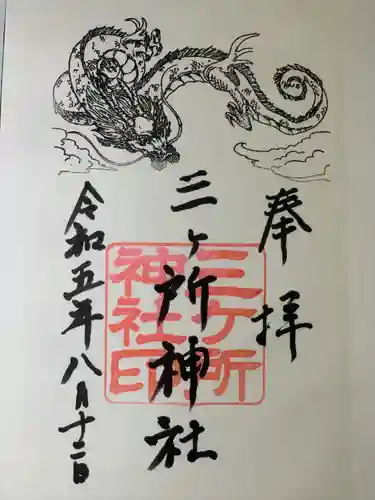 奉拝
三ヶ所神社
三ケ所
神社印
令和五年八月十二日